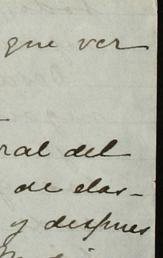 que ver
ral del
de clas-
y despues